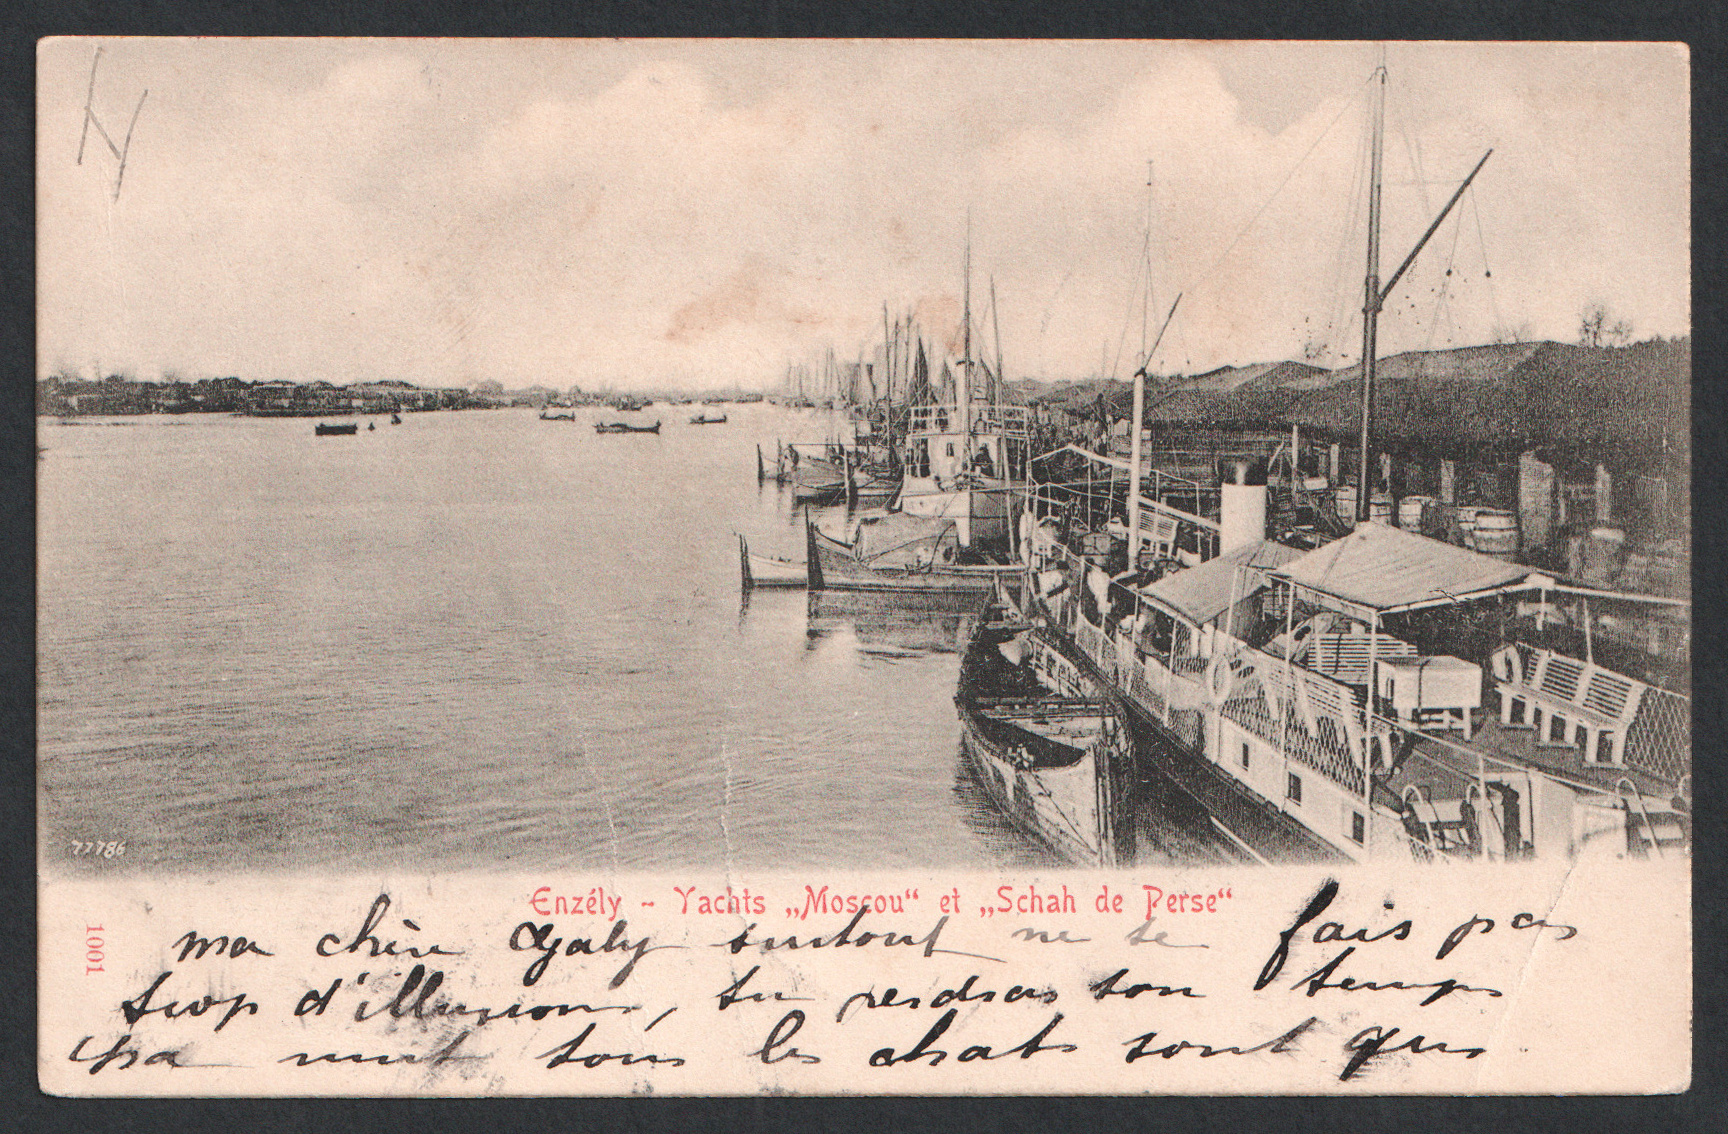 77786
Enzély - Yachts „Moscou“ et „Schah de Perse“
1001
ma chère Galy surtout ne te fais pas
trop d'illusions, tu perdras ton temps
la nuit tous les chats sont gris.